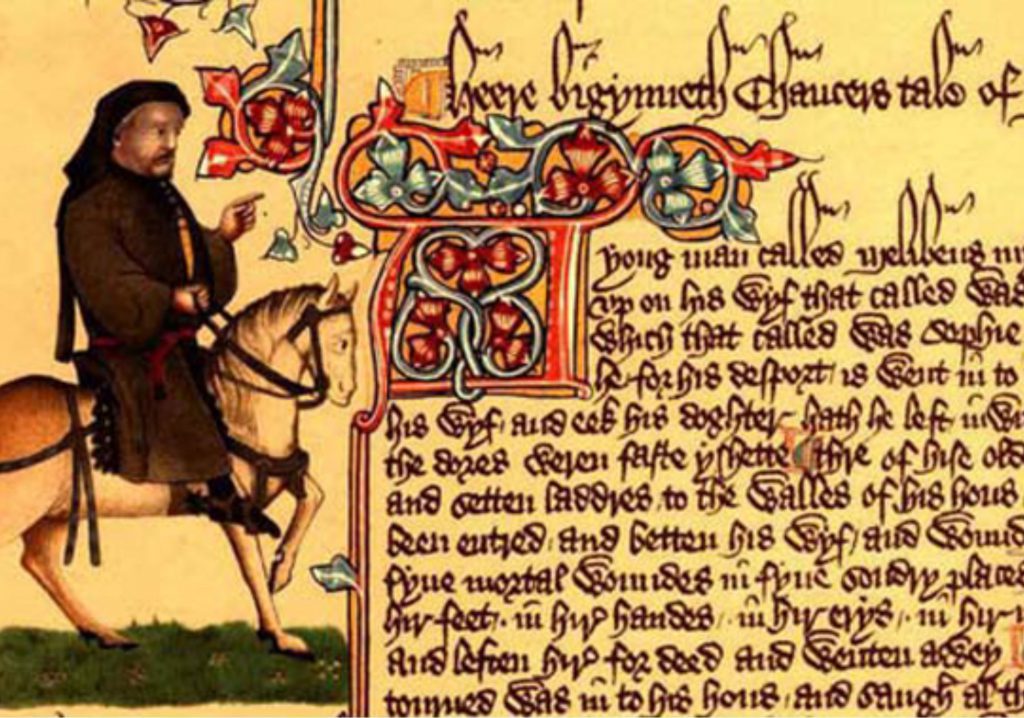 Heere bigynneth Chaucers tale of
A yong man called Melibeus m
vp on his wyf that called was
which that called was Sophie
he for his desport is went in to
his wyf and eek his doghter hath he left inwi
the dores weren faste yshette thre of hise old
and setten laddres to the walles of his hous
been entred and betten his wyf and wound
fyue mortal woundes in fyue sondry places
hir feet in hir handes in hir erys in hir
And leften hir for deed and wenten awey
torned was in to his hous and saugh al th